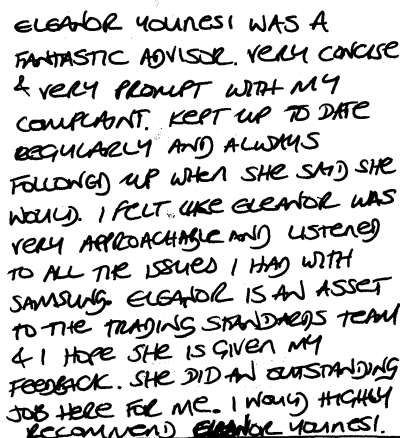 ELEANOR YOUNESI WAS A
FANTASTIC ADVISOR. VERY CONCISE
& VERY PROMPT WITH MY
COMPLAINT. KEPT UP TO DATE
REGULARLY AND ALWAYS
FOLLOWED UP WHEN SHE SAID SHE
WOULD. I FELT LIKE ELEANOR WAS
VERY APPROACHABLE AND LISTENED
TO ALL THE ISSUES I HAD WITH
SAMSUNG. ELEANOR IS AN ASSET
TO THE TRADING STANDARDS TEAM
& I HOPE SHE IS GIVEN MY
FEEDBACK. SHE DID AN OUTSTANDING
JOB HERE FOR ME. I WOULD HIGHLY
RECOMMEND ELEANOR YOUNESI.